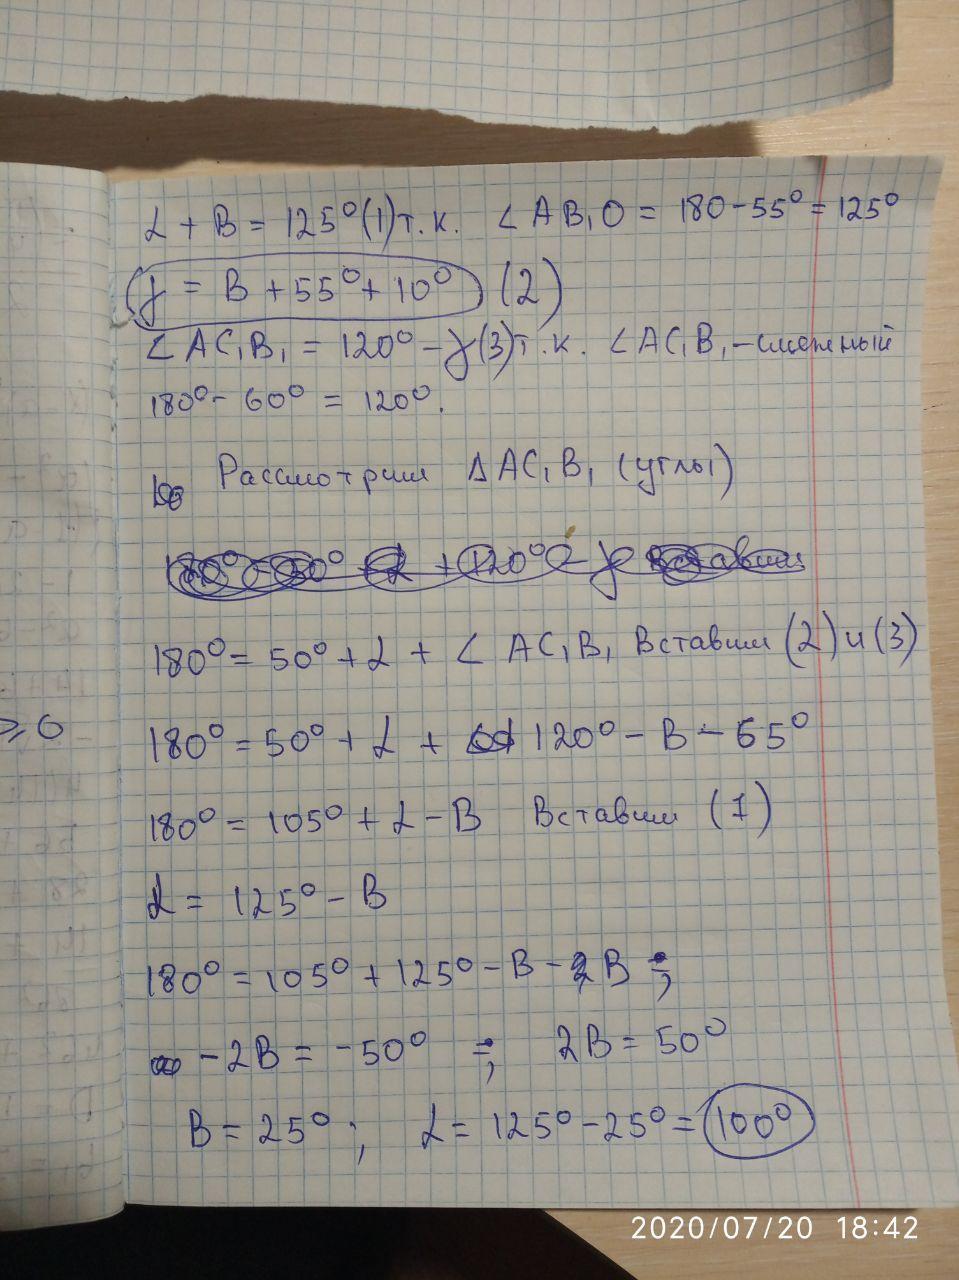 α + B = 125° (1) т.к. ∠AB₁O = 180 - 55° = 125°
γ = B + 55° + 10° (2)
∠AC₁B₁ = 120° - γ (3) т.к. ∠AC₁B₁ - смежный
180° - 60° = 120°.
Рассмотрим ΔAC₁B₁ (углы)
180° = 50° + α + ∠AC₁B₁ Вставим (2) и (3)
≥ 0
180° = 50° + α + 120° - B - 65°
180° = 105° + α - B Вставим (1)
α = 125° - B
180° = 105° + 125° - B - B ;
- 2B = -50° ; 2B = 50°
B = 25° ; α = 125° - 25° = 100°
2020/07/20 18:42